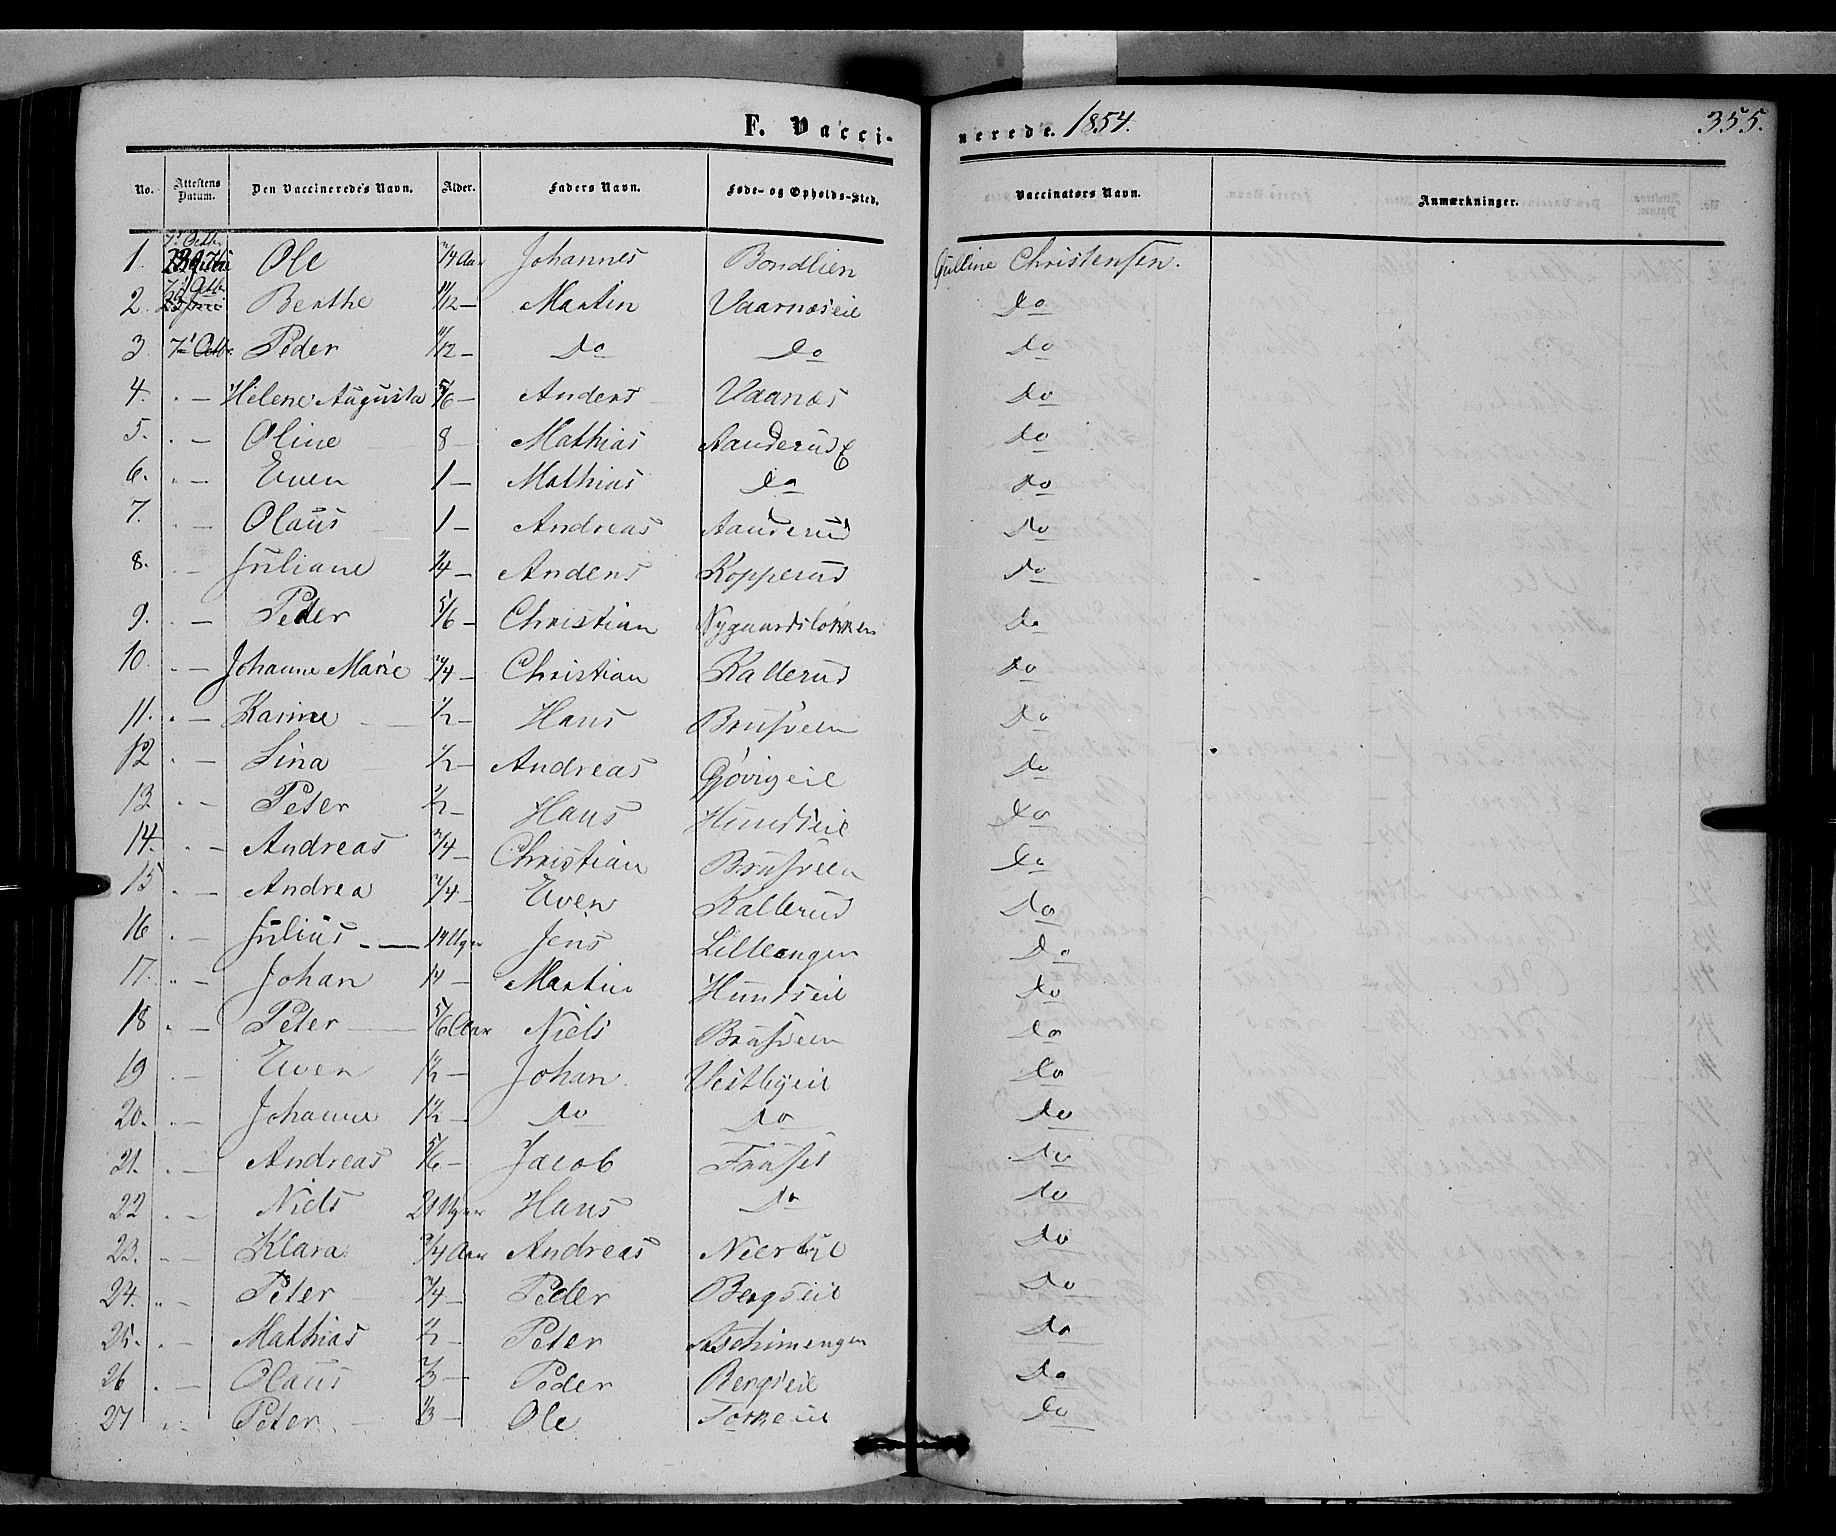 F. Vacci- nerede. 1854. 355.
No. Attestens Datum. Den Vaccineredes Navn. Alder. Faders Navn. Føde- og Opholds-Sted. Vaccinators Navn. Anmærkninger.
1. 7d Octbr Ole 3/4 Aar Johannes Bondlien Gulline Christensen.
2. 7d Octbr Berthe 11/12 — Martin Vaarnæseie do
3. 7d Octbr. Peder 11/12 — do do do
4. . — Helene Augusta 5/6 — Anders Vaanæs do
5. . — Oline 8 — Mathias Aanderud do
6. . — Even 1 — Mathias do do
7. . — Olaus 1 — Andreas Aanderud do
8. . — Juliane 1/4 — Anders Kopperud do
9. . — Peder 5/6 — Christian Nygaardsløkken do
10. . — Johanne Marie 3/4 — Christian Kallerud do
11. . — Karine 1/2 — Hans Brusveen do
12 . — Lina 1/2 — Andreas Gjøvigeie do
13 . — Peter 1/2 — Hans Hundseie do
14. . — Andreas 3/4 — Christian Brusveen do
15 . — Andrea 3/4 — Even Kallerud do
16 . — Julius 14 Uger Jens Lilleengen do
17. „ — Johan 14 — Martin Hundseie do
18 . — Peter 5/6 Aar Niels Brusveen do
19 . — Even 1 1/2 — Johan Vestbyeie do
20. . — Johanne 1 1/2 — do do do
21. . — Andreas 5/6 — Jacob do
22 . — Niels 21 Uger Hans do do
23. . — Klara 3/4 Aar Andreas do
24. „ — Peter 3/4 — Peder Bergseie do
25. . — Mathias 1/2 — Peter do
26 . — Olaus 2/3 — Peder Bergseie do
27 . . Peter 1/3 — Ole do